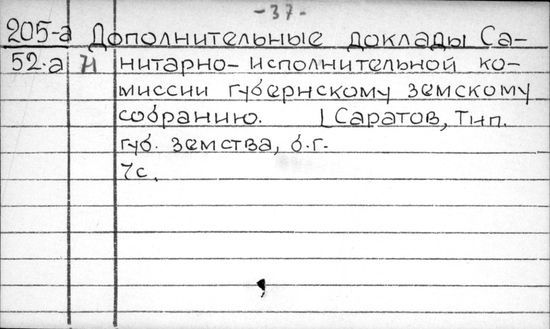 -37-
205-а Дополнительные доклады Са-
52.а 71 нитарно-исполнительной ко-
миссии губернскому земскому
собранию. Саратов, Тип.
губ. земства, б.г.
7с.